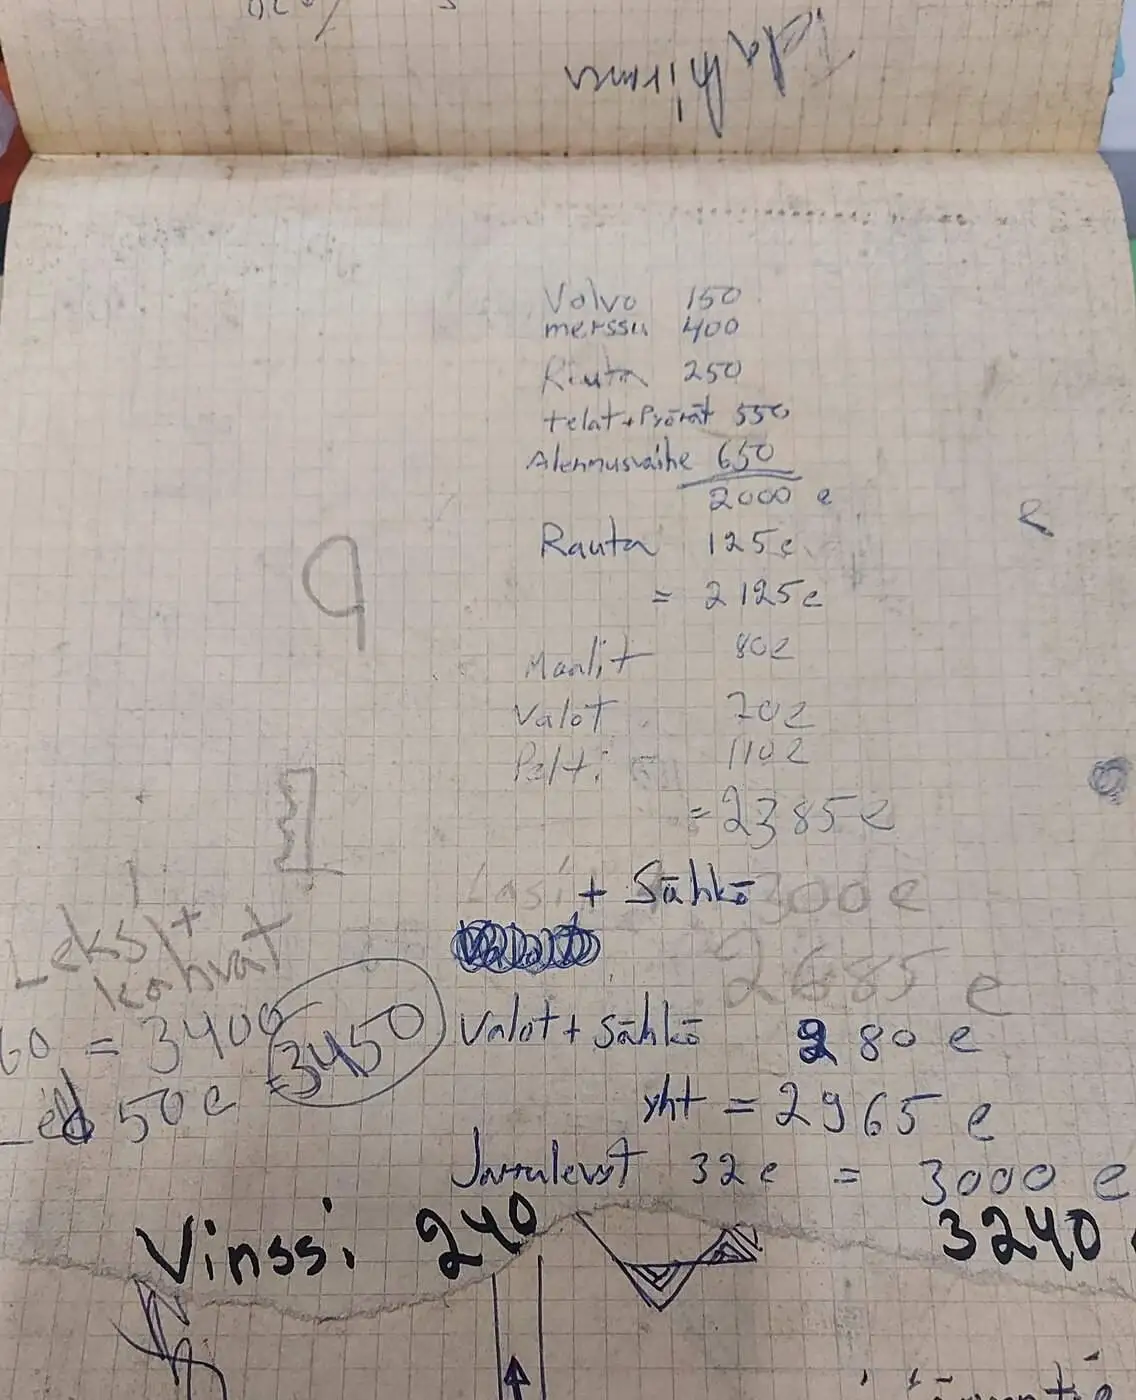 Volvo 150
merssu 400
Rauta 250
telat+Pyörät 550
Alennusvaihe 650
2000 e
Rauta 125e
= 2125e
Maalit 80e
Valot 70e
Pelti 110e
= 2385e
Lasi + Sähkö 300e
2685 e
Valot + Sähkö 280 e
yht = 2965 e
Jarrulevyt 32e = 3000 e
Vinssi 240 3240
Leksit +
kahvat
60 = 3400
Led 50e = 3450